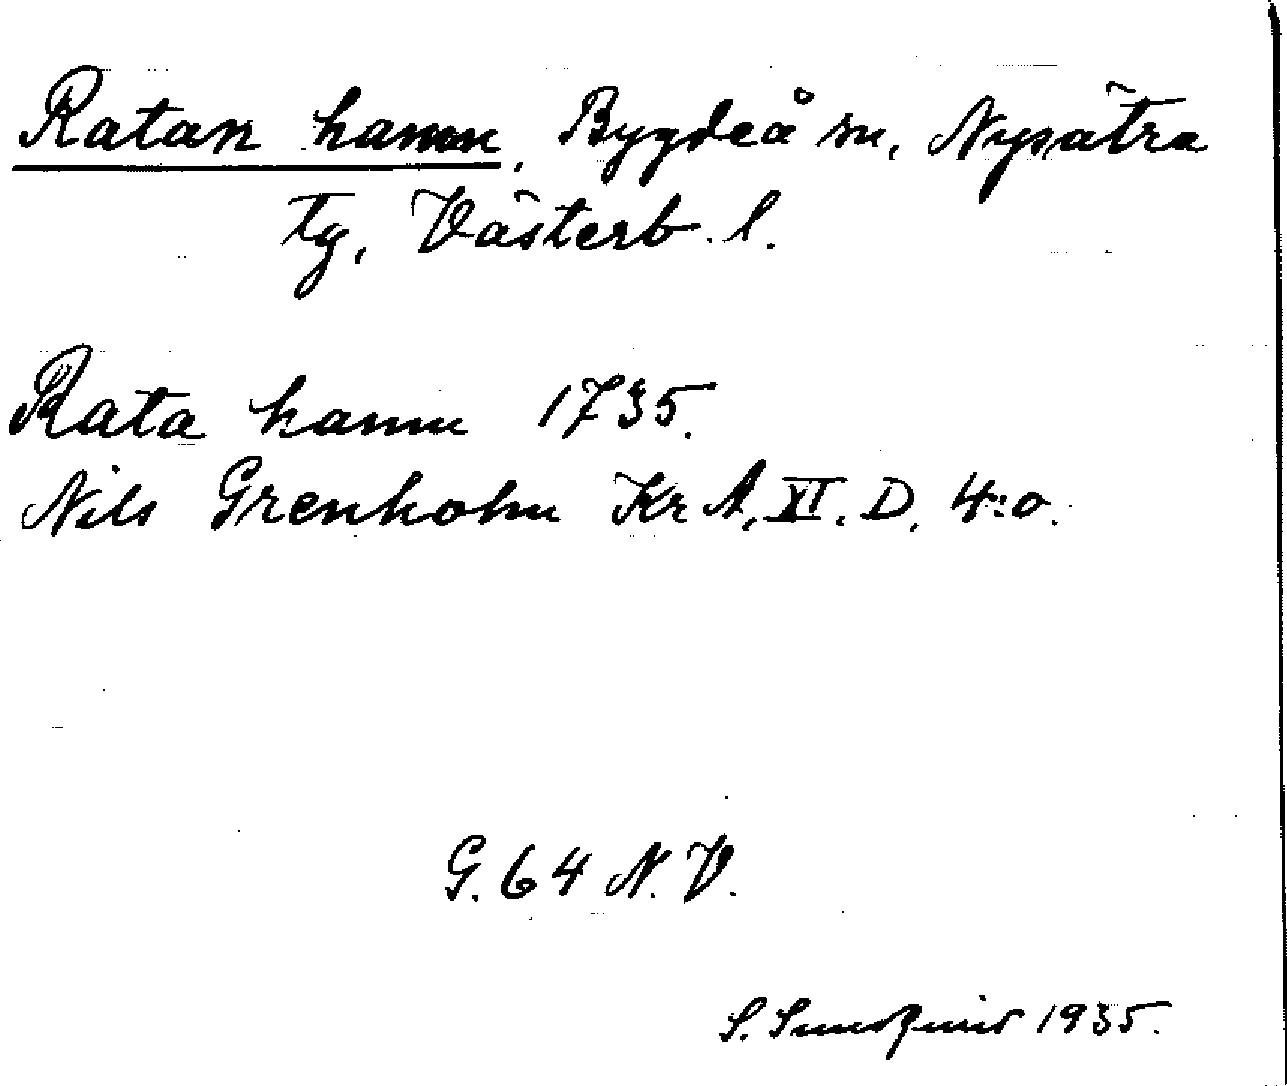 Ratan hamn, Bygdeå sn, Nysätra
tg, Västerb. l.
Rata hamn 1735.
Nils Grenholm KrA, XI. D, 4:o.
G. 64 N. V.
S. Sundquist 1935.